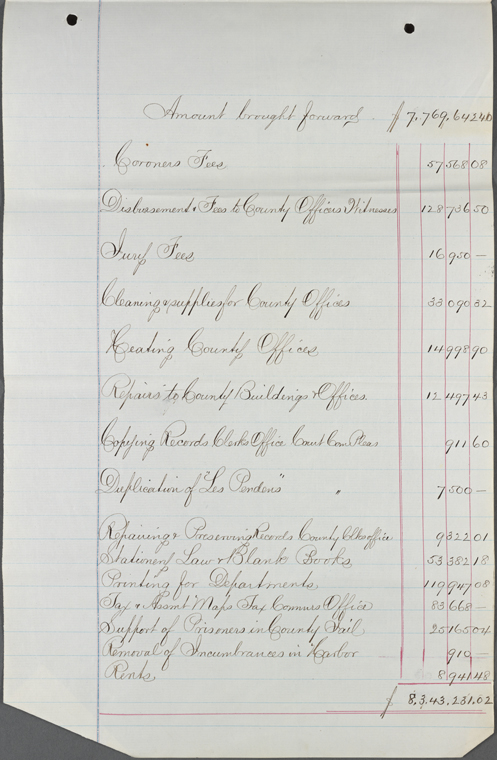 Amount brought forward $ 7,769,642.40
Coroners Fees 57568 08
Disbursement & Fees to County Officers Witnesses 128736 50
Jury Fees 16950 —
Cleaning & supplies for County Offices 33090 32
Heating County Offices 14998 90
Repairs to County Buildings & Offices 12497 43
Copying Records Clerks Office Court Com. Pleas 911 60
Duplication of "Les Pendens" " 7500 —
Repairing & Preserving Records County Clks office 9322 01
Stationery Law & Blank Books 53382 18
Printing for Departments 119947 08
Tax & Assmt Maps Tax Commrs Office 83668 —
Support of Prisoners in County Jail 25165 04
Removal of Incumbrances in Harbor 910 —
Rents 8941 48
$ 8,343,231.02